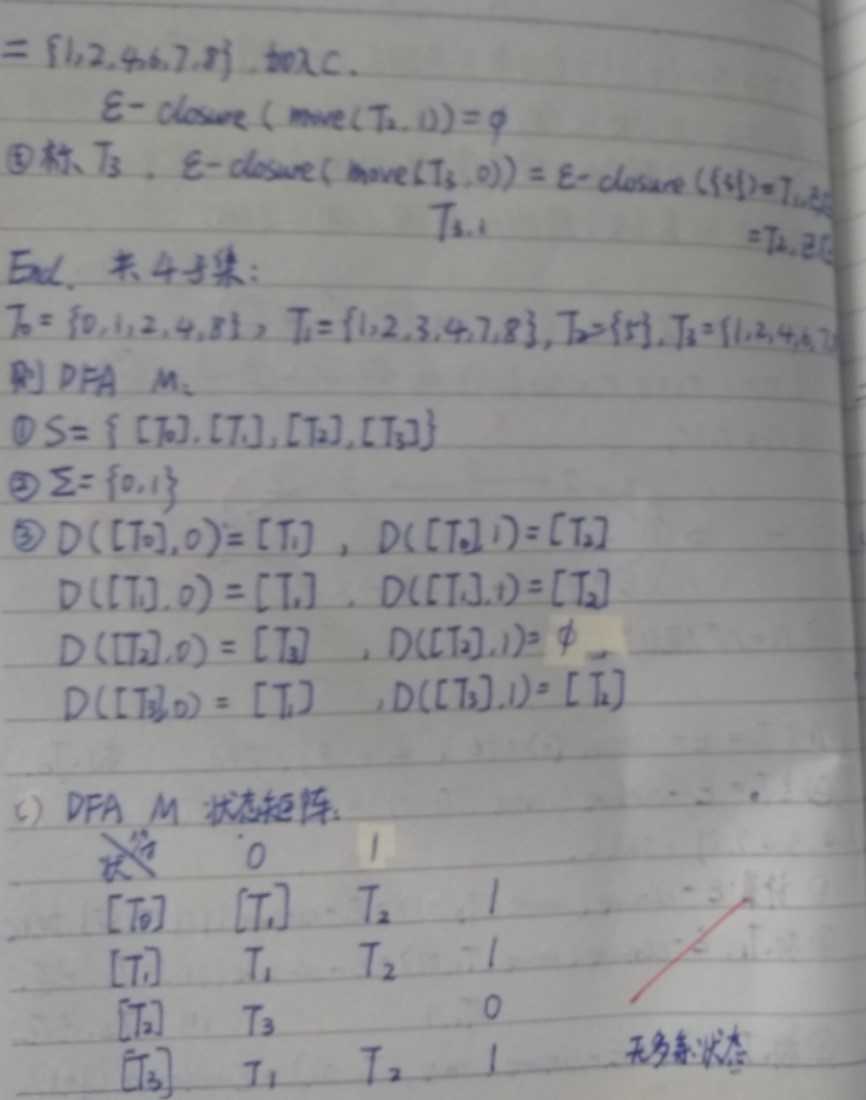 = {1,2,4,6,7,8} 加入C.
ε-closure(move(T₂,1))=φ
③ 标、T₃, ε-closure(move(T₃,0)) = ε-closure({3})=T₁,已
T₃,1 =T₂,已
End. 共4子集:
T₀={0,1,2,4,8}, T₁={1,2,3,4,7,8}, T₂={5}, T₃={1,2,4,6,7
则 DFA M:
① S={ [T₀],[T₁],[T₂],[T₃]}
② Σ={0,1}
③ D([T₀],0)=[T₁], D([T₀],1)=[T₂]
D([T₁],0)=[T₁], D([T₁],1)=[T₂]
D([T₂],0)=[T₃], D([T₂],1)=φ
D([T₃],0)=[T₁], D([T₃],1)=[T₂]
c) DFA M 状态矩阵:
状 符 0 1
[T₀] [T₁] T₂ 1
[T₁] T₁ T₂ 1
[T₂] T₃ 0
[T₃] T₁ T₂ 1
无多余状态